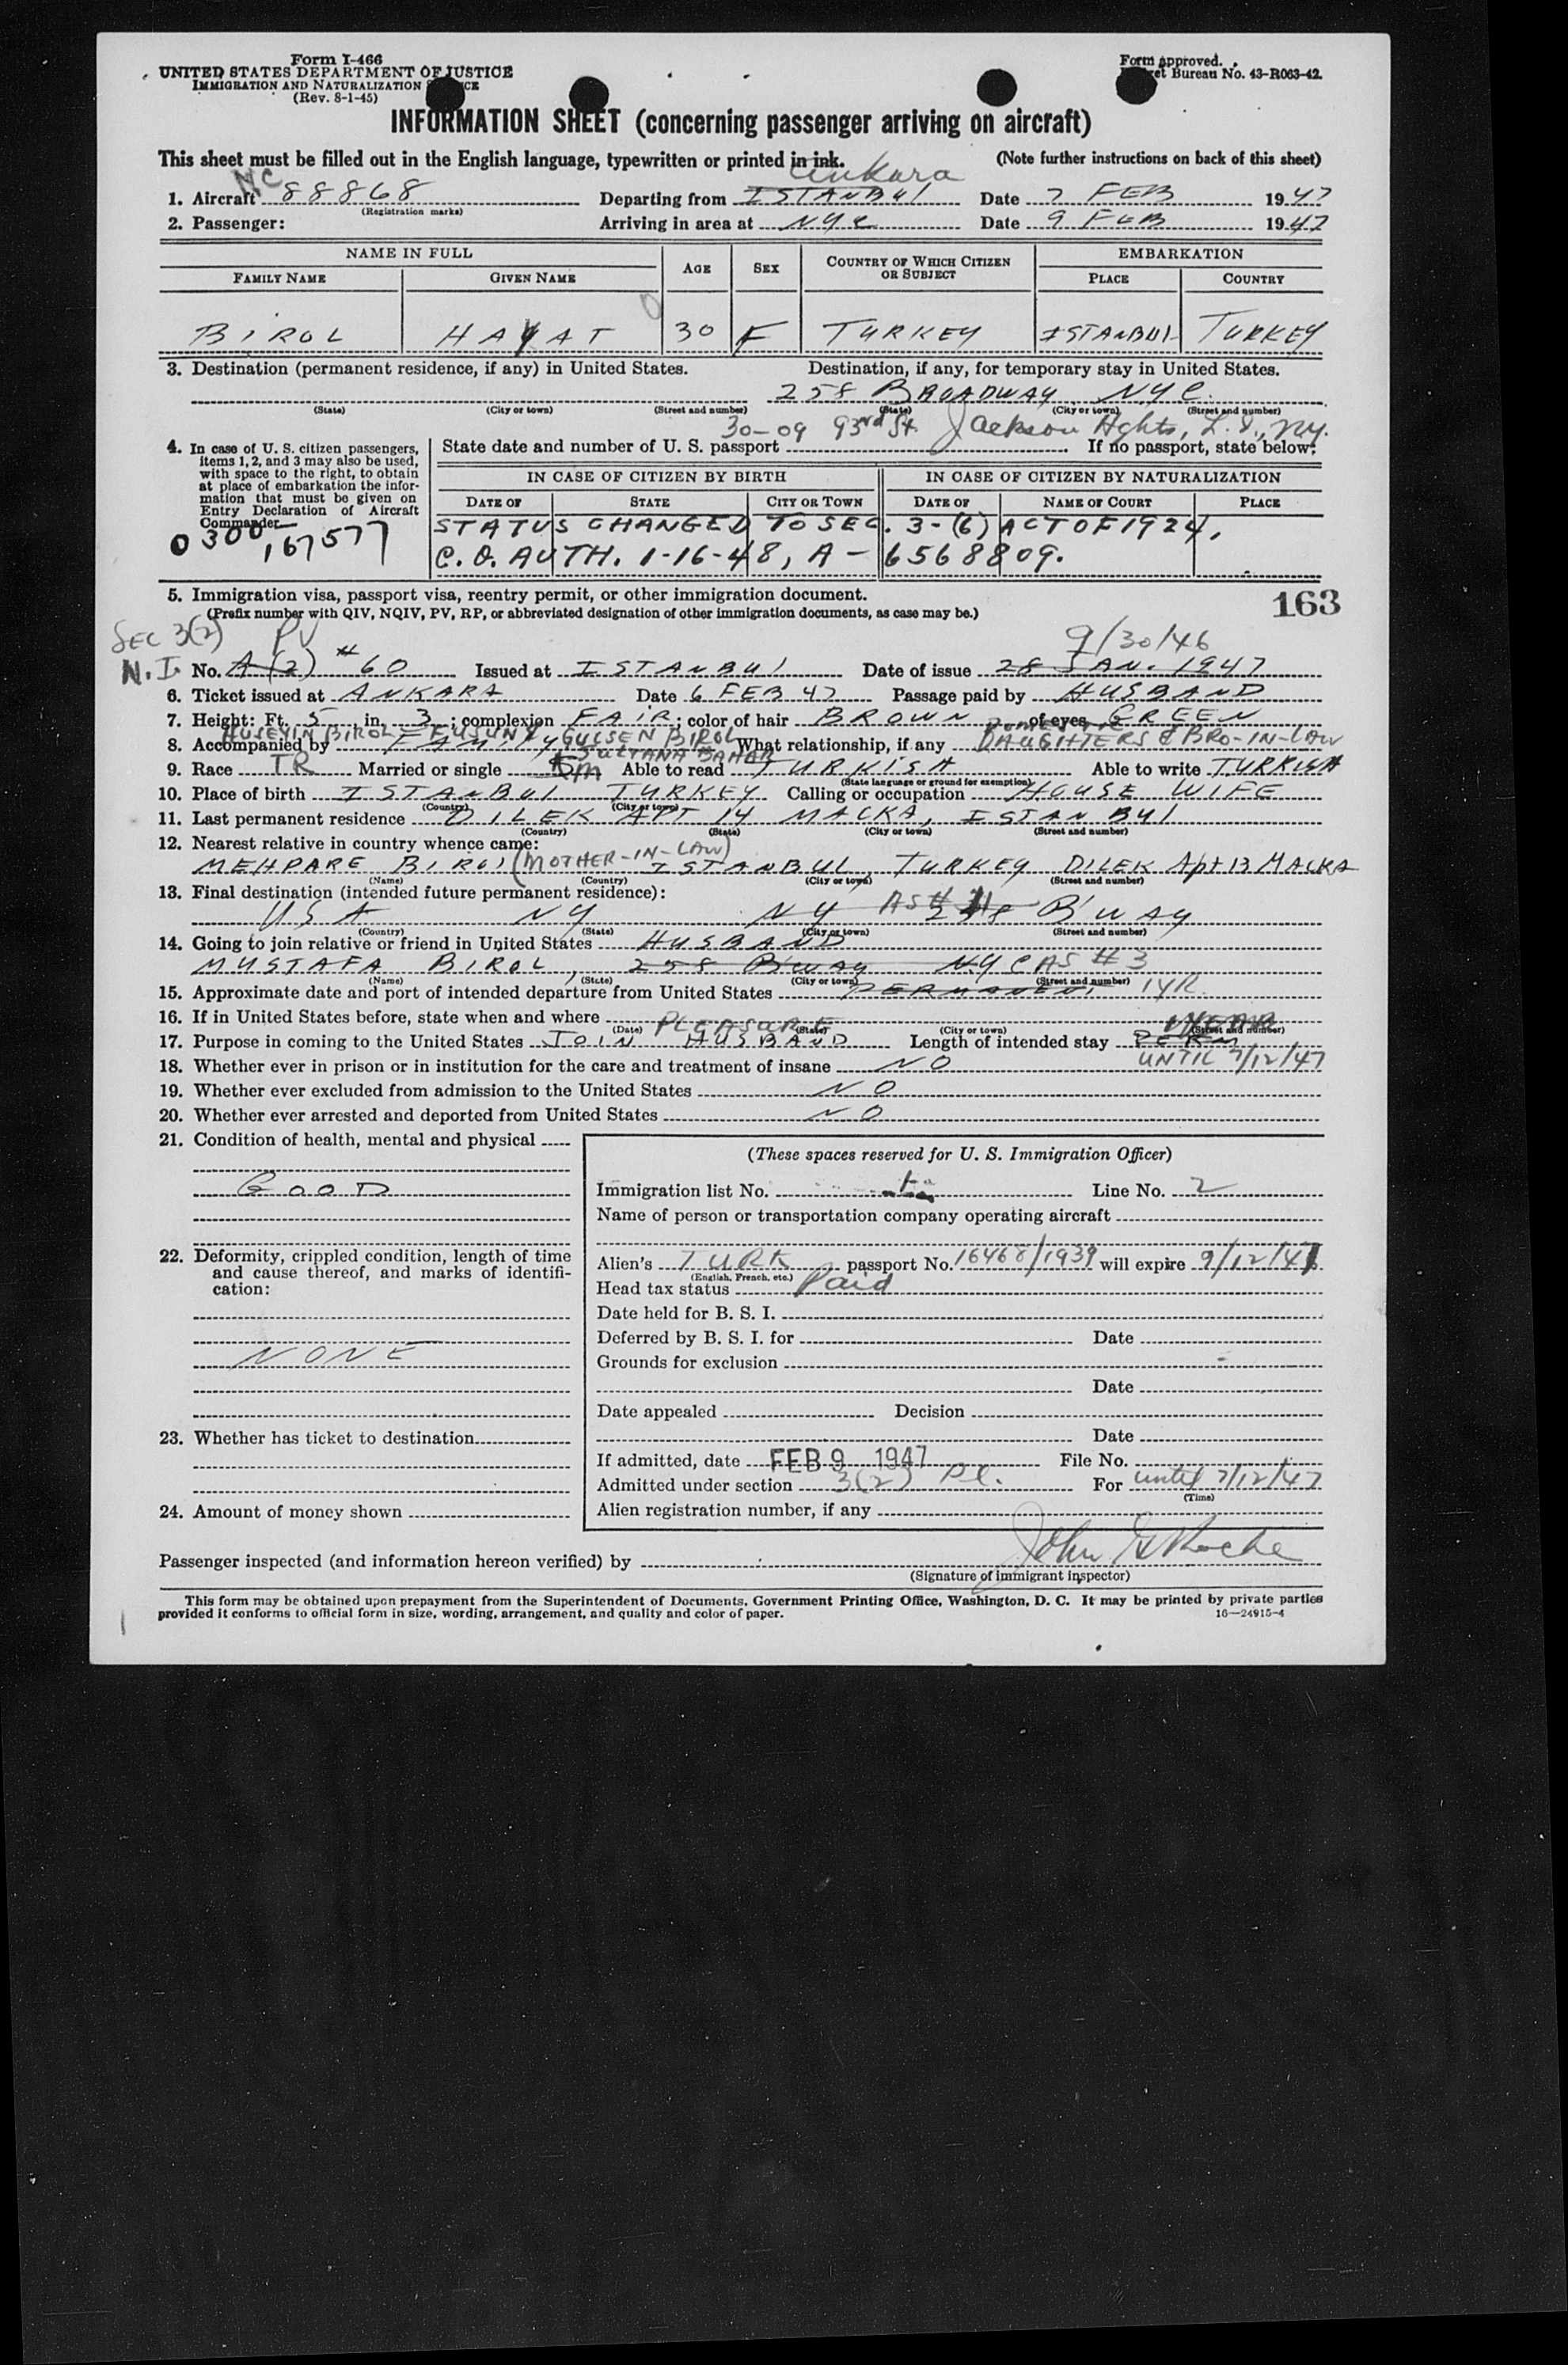 Form I-466
UNITED STATES DEPARTMENT OF JUSTICE
IMMIGRATION AND NATURALIZATION
(Rev. 8-1-45)
Form approved.
Bureau No. 43-R063-42.
INFORMATION SHEET (concerning passenger arriving on aircraft)
This sheet must be filled out in the English language, typewritten or printed in ink. (Note further instructions on back of this sheet)
Ankara
1. Aircraft NC 88868 Departing from ISTANBUL Date 7 FEB 1947
(Registration marks)
2. Passenger: Arriving in area at NYC Date 9 FEB 1947
NAME IN FULL AGE SEX COUNTRY OF WHICH CITIZEN OR SUBJECT EMBARKATION
FAMILY NAME GIVEN NAME PLACE COUNTRY
BIROL HAYAT 30 F TURKEY ISTANBUL TURKEY
3. Destination (permanent residence, if any) in United States. Destination, if any, for temporary stay in United States.
258 BROADWAY NYC.
(State) (City or town) (Street and number) (State) (City or town) (Street and number)
30-09 93rd St. Jackson Hghts, L.I., N.Y.
4. In case of U. S. citizen passengers, items 1, 2, and 3 may also be used, with space to the right, to obtain at place of embarkation the information that must be given on Entry Declaration of Aircraft Commander
State date and number of U. S. passport If no passport, state below:
IN CASE OF CITIZEN BY BIRTH IN CASE OF CITIZEN BY NATURALIZATION
DATE OF STATE CITY OR TOWN DATE OF NAME OF COURT PLACE
0300 167577
STATUS CHANGED TO SEC. 3-(6) ACT OF 1924,
C.O. AUTH. 1-16-48, A-6568809.
5. Immigration visa, passport visa, reentry permit, or other immigration document.
(Prefix number with QIV, NQIV, PV, RP, or abbreviated designation of other immigration documents, as case may be.)
163
SEC 3(2) PV 9/30/46
N.I. No. A(2) #60 Issued at ISTANBUL Date of issue 28 JAN. 1947
6. Ticket issued at ANKARA Date 6 FEB 47 Passage paid by HUSBAND
7. Height: Ft. 5 in. 3; complexion FAIR; color of hair BROWN of eyes GREEN
HUSEYIN BIROL GULSEN BIROL
8. Accompanied by FAMILY What relationship, if any DAUGHTERS & BRO-IN-LAW
SULTANA BAHAR
9. Race TR Married or single M Able to read TURKISH Able to write TURKISH
(State language or ground for exemption)
10. Place of birth ISTANBUL TURKEY Calling or occupation HOUSE WIFE
(Country) (City or town)
11. Last permanent residence DILEK APT 14 MACKA, ISTANBUL
(Country) (State) (City or town) (Street and number)
12. Nearest relative in country whence came:
MEHPARE BIROL (MOTHER-IN-LAW) ISTANBUL, TURKEY DILEK Apt 13 MACKA
(Name) (Country) (City or town) (Street and number)
13. Final destination (intended future permanent residence):
USA NY NY AS # 11 258 B'WAY
(Country) (State) (City or town) (Street and number)
14. Going to join relative or friend in United States HUSBAND
MUSTAFA BIROL, 258 B'WAY NYC AS # 3
(Name) (State) (City or town) (Street and number)
15. Approximate date and port of intended departure from United States PERMANENT 1YR.
16. If in United States before, state when and where
(Date) (State) (City or town) (Street and number)
PLEASURE
17. Purpose in coming to the United States JOIN HUSBAND Length of intended stay PERM
18. Whether ever in prison or in institution for the care and treatment of insane NO UNTIL 7/12/47
19. Whether ever excluded from admission to the United States NO
20. Whether ever arrested and deported from United States NO
21. Condition of health, mental and physical
GOOD
22. Deformity, crippled condition, length of time and cause thereof, and marks of identification:
NONE
23. Whether has ticket to destination
24. Amount of money shown
(These spaces reserved for U. S. Immigration Officer)
Immigration list No. Line No. 2
Name of person or transportation company operating aircraft
Alien's TURK passport No. 16468/1939 will expire 9/12/47
(English, French, etc.)
Head tax status Paid
Date held for B. S. I.
Deferred by B. S. I. for Date
Grounds for exclusion
Date
Date appealed Decision
Date
If admitted, date FEB 9 1947 File No.
Admitted under section 3(2) Pl. For until 7/12/47
(Time)
Alien registration number, if any
Passenger inspected (and information hereon verified) by John Roche
(Signature of immigrant inspector)
This form may be obtained upon prepayment from the Superintendent of Documents, Government Printing Office, Washington, D. C. It may be printed by private parties
provided it conforms to official form in size, wording, arrangement, and quality and color of paper. 16—24915-4